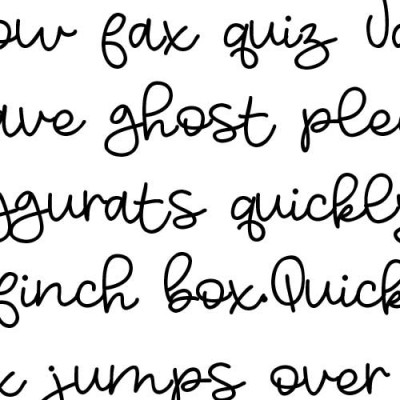 ow fax quiz Ja
ave ghost ple
ggurats quickly
finch box.Quick
x jumps over